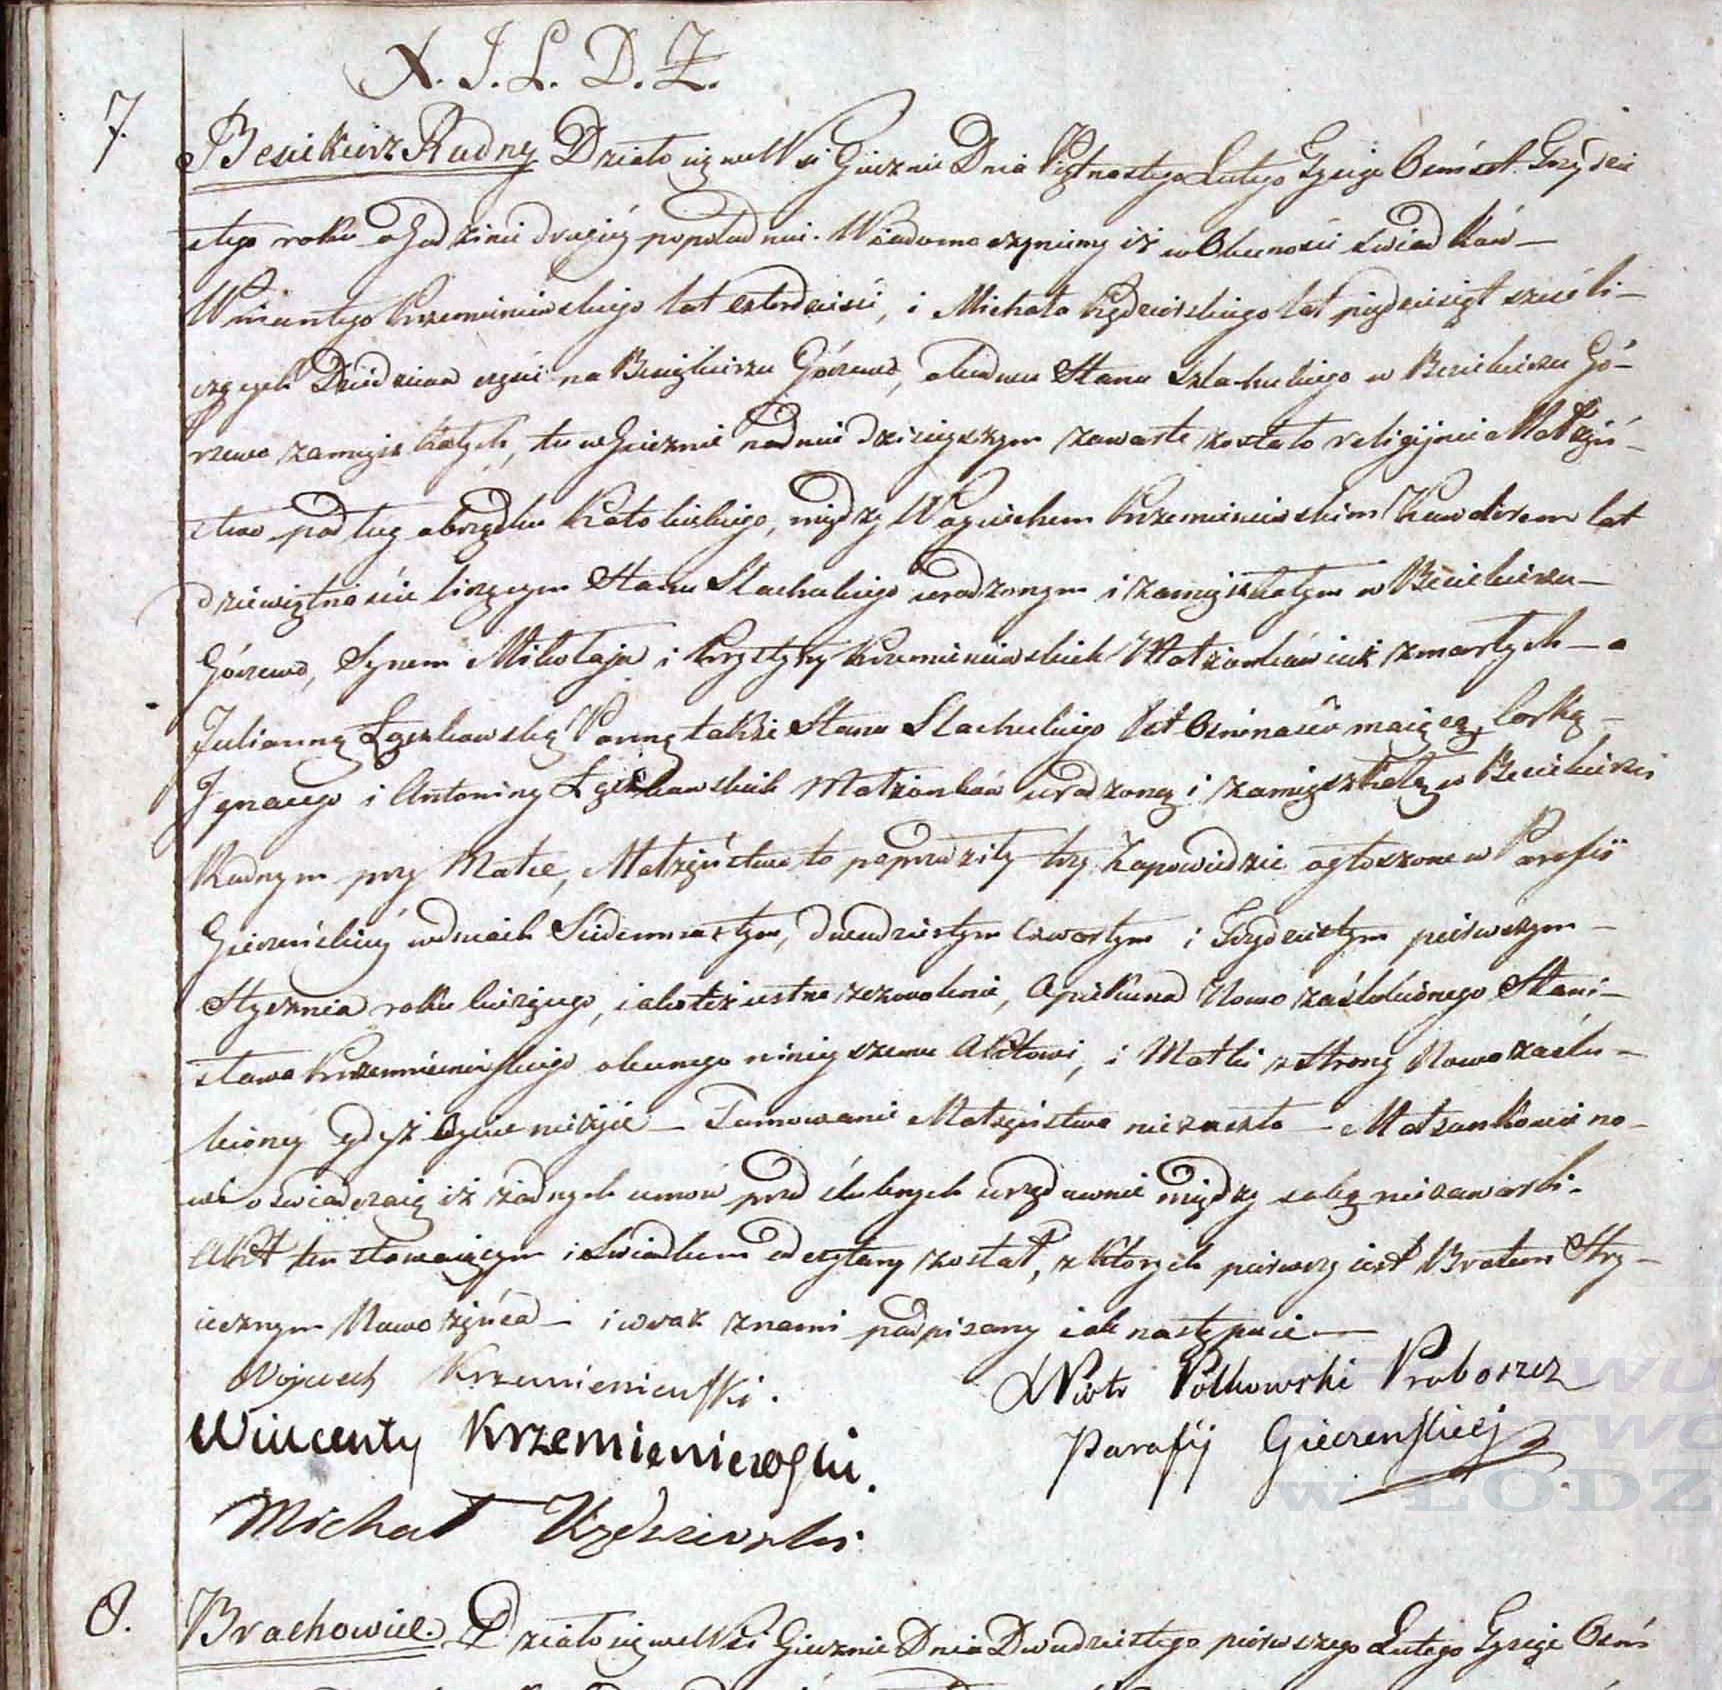 N. J. L. D. Z.
7.
Besiekierz Rudny Działo się we Wsi Giecznie Dnia Piętnastego Lutego Tysiąc Ośmset Trzydzie
stego roku o Godzinie drugiéy popołudniu. Wiadomo czyniemy iż w Obecności świadków —
Wincentego Krzemieniewskiego lat czterdzieści, i Michała Kędzierskiego lat piędziesiąt sześć li-
czących Dziedziców części na Besiekierzu Górewo, obudwu Stanu Szlacheckiego w Besiekierzu Gó-
rzewo zamięszkałych, tu w Giecznie na dniu dzisieyszym zawarte zostało religijnie Małżeń-
stwo podług obrzędu Katolickiego, między Woyciechem Krzemieniewskim Kawalerem lat
dziewiętnaście liczącym Stanu Slacheckiego urodzonym i zamięszkałym w Besiekierzu —
Górzewo, Synem Mikołaja i Krystyny Krzemieniewskich Małżonków iuż zmarłych — a
Julianną Łączkowską Panną także Stanu Slacheckiego lat Ośmnaście maiącą, Corką —
Ignacego i Antoniny Łączkowskich Małżonków urodzoną i zamięszkałą w Besiekierzu
Rudnym przy Matce, Małżeństwo to poprzedziły trzy Zapowiedzie ogłoszone w Parafii
Gieczeńskiéy w dniach Siedemnastym, dwudziestym Czwartym i Trzydziestym pierwszym —
Stycznia roku bieżącego, iako też ustne zezwolenie, Opiekuna Nowo zaślubionego Stani-
sława Krzemieniewskiego obecnego ninieyszemu Aktowi, i Matki z Strony Nowo zaślu-
bioney gdyż Oyciec nieżyie — Tamowanie Małżeństwa niezaszło — Małżonkowie no-
wi oświadczaią iż żadnych umów przedślubnych urzędownie między sobą niezawarli.
Akt ten stawaiącym i świadkom odczytany został, z których pierwszy iest Bratem Stry-
iecznym Nowożeńca — i wraz z nami podpisany iak następuie —
Wojciech Krzemieniewski.
X Piotr Polkowski Proboszcz
Wincenty Krzemieniewski.
Parafij Gieczenskiej
Michał Kędzierski
8.
Brachowice. Działo się we Wsi Giecznie Dnia Dwudziestego pierwszego Lutego Tysiąc Ośm
w ŁODZ